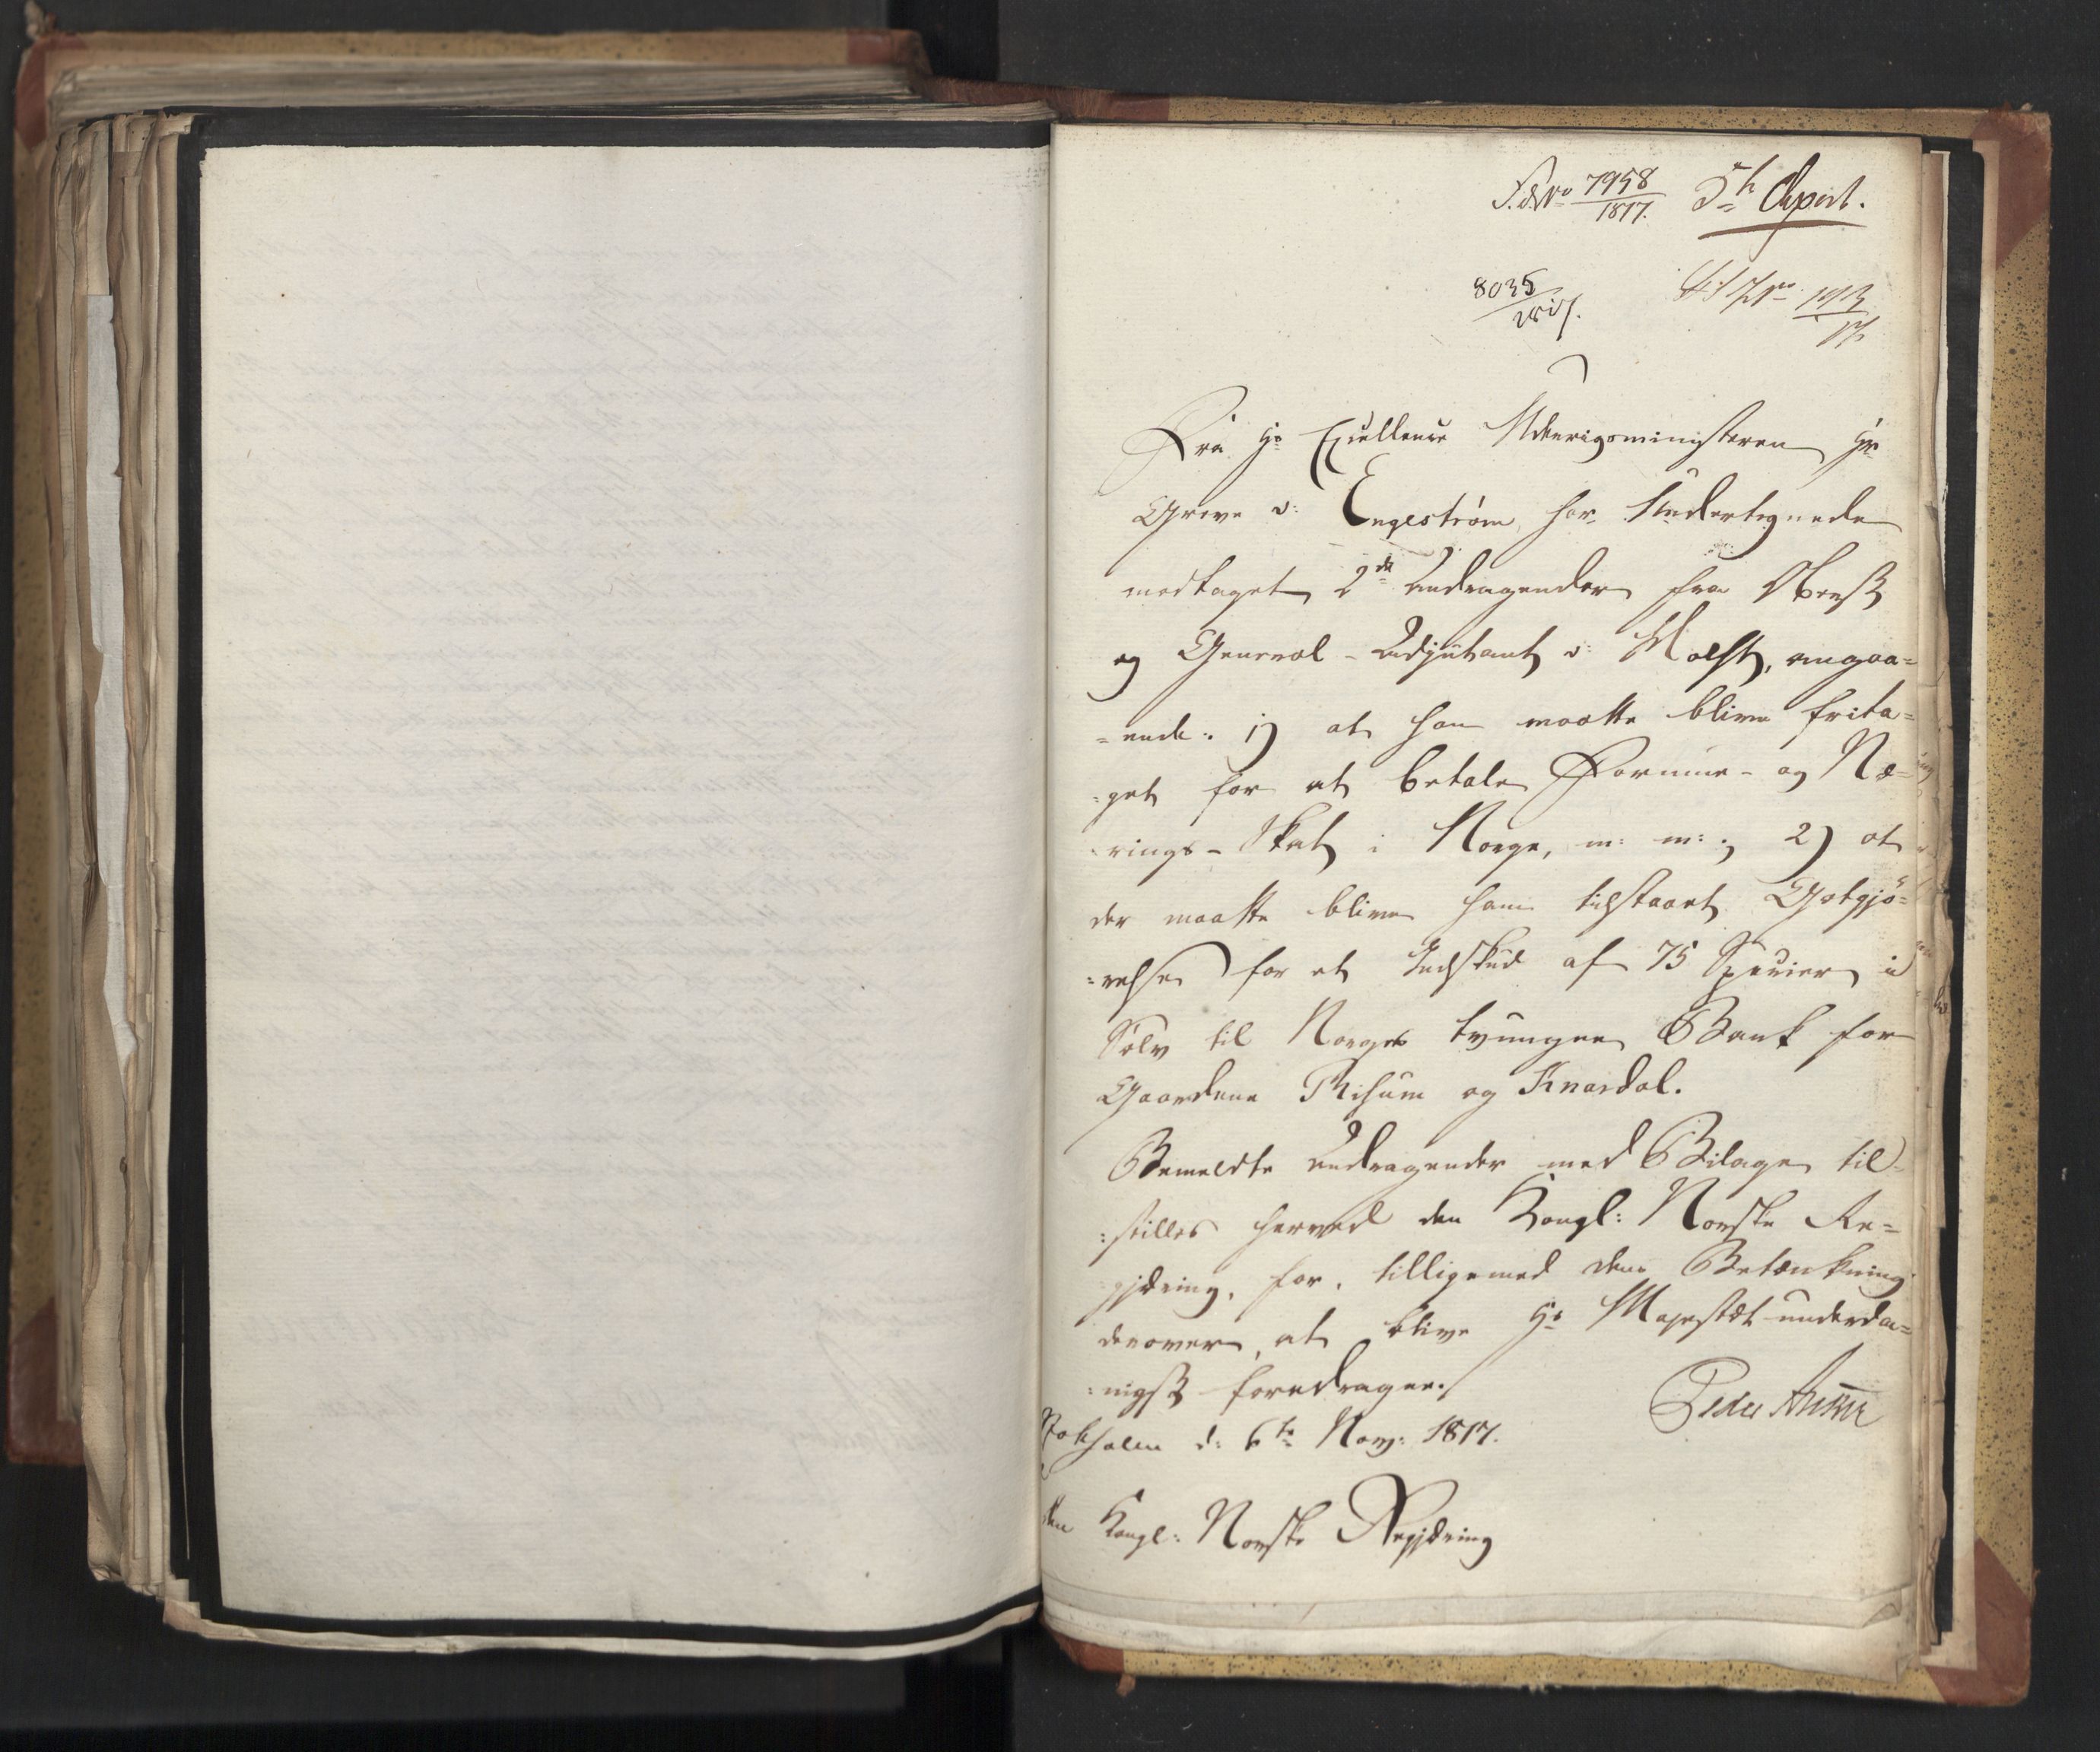 7958/1817. 5te Depart.
8035/1817.
Fra Hs Excellence Udenrigsministeren Hr
Greve v: Engeström har Undertegnede
modtaget 2de Andragender fra Oberst
og General-Adjutant v: Holst, angaa=
=ende: 1) at han maatte blive frita=
=get for at betale Formue- og Næ=
rings-Skat i Norge, m: m:; 2) at
der maatte blive ham tilstaaet Godtgjö=
=relse for et Indskud af 75 Specier i
Sølv til Norges tvungne Bank for
Gaardene Risum og Knardal.
Bemeldte Andragender med Bilage til=
=stilles herved den Kongl: Norske Re=
gjering, for, tilligemed dens Betænkning
derover, at blive Hs Majestæt underda=
=nigst foredragne.
Peder Anker
Stokholm d: 6te Nov: 1817.
den Kongl: Norske Regjering